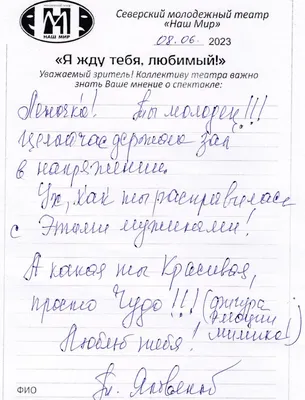 НАШ МИР
Северский молодежный театр
«Наш Мир»
08.06. 2023
«Я жду тебя, любимый!»
Уважаемый зритель! Коллективу театра важно
знать Ваше мнение о спектакле:
Леночка! Ты молодец!!!
Целый час держала зал
в напряжении.
Ух, как ты расправилась
с этими мужиками!
А какая ты красивая,
просто Чудо!!! (фигура
эмоции
мимика!)
Люблю тебя!
ФИО